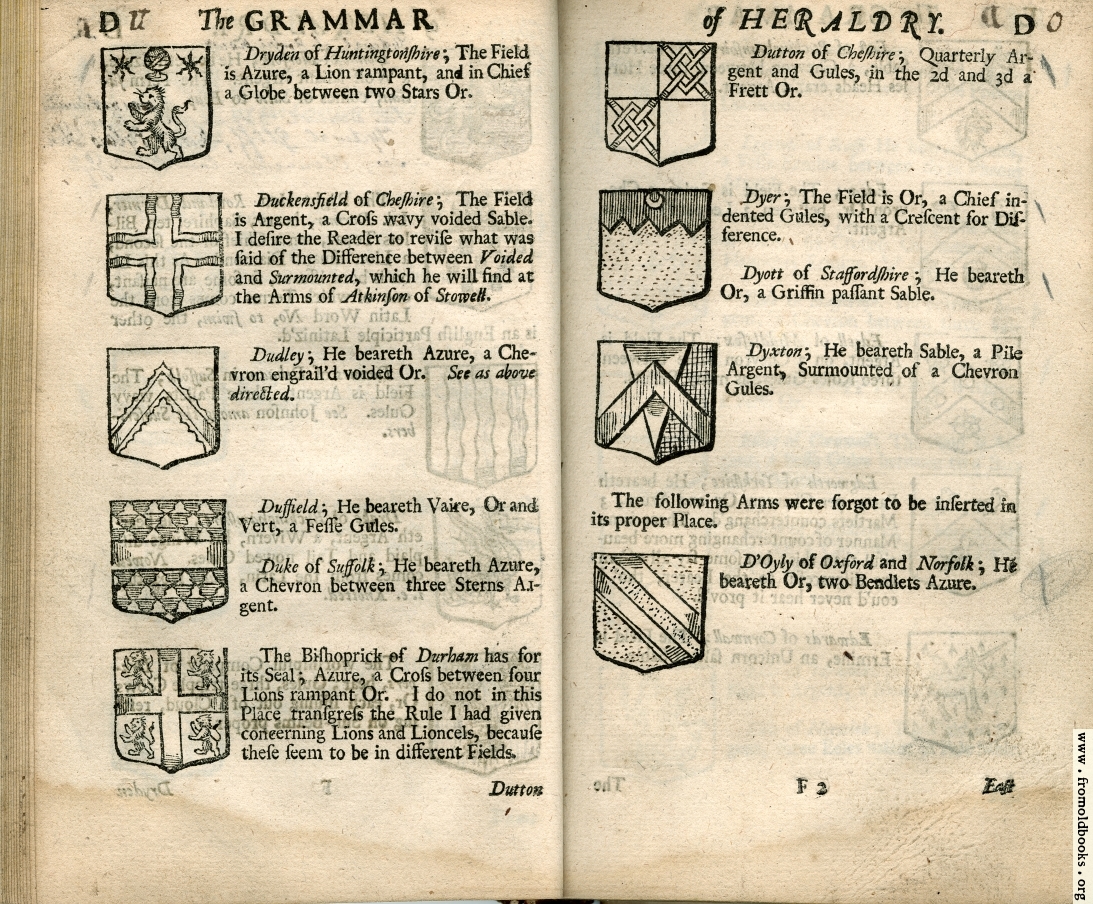 DU The GRAMMAR
Dryden of Huntingtonſhire; The Field
is Azure, a Lion rampant, and in Chief
a Globe between two Stars Or.
Duckensfield of Cheſhire; The Field
is Argent, a Croſs wavy voided Sable.
I deſire the Reader to reviſe what was
ſaid of the Difference between Voided
and Surmounted, which he will find at
the Arms of Atkinſon of Stowell.
Dudley; He beareth Azure, a Che-
vron engrail'd voided Or. See as above
directed.
Duffield; He beareth Vaire, Or and
Vert, a Feſſe Gules.
Duke of Suffolk; He beareth Azure,
a Chevron between three Sterns Ar-
gent.
The Biſhoprick of Durham has for
its Seal; Azure, a Croſs between four
Lions rampant Or. I do not in this
Place tranſgreſs the Rule I had given
concerning Lions and Lioncels, becauſe
theſe ſeem to be in different Fields.
Dutton
of HERALDRY. DO
Dutton of Cheſhire; Quarterly Ar-
gent and Gules, in the 2d and 3d a
Frett Or.
Dyer; The Field is Or, a Chief in-
dented Gules, with a Creſcent for Diſ-
ference.
Dyott of Staffordſhire; He beareth
Or, a Griffin paſſant Sable.
Dyxton; He beareth Sable, a Pile
Argent, Surmounted of a Chevron
Gules.
The following Arms were forgot to be inſerted in
its proper Place.
D'Oyly of Oxford and Norfolk; He
beareth Or, two Bendlets Azure.
F 2 Eaſt
www.fromoldbooks.org